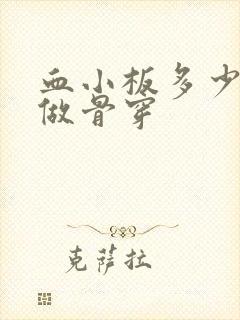 血小板多少
做骨穿
克萨拉